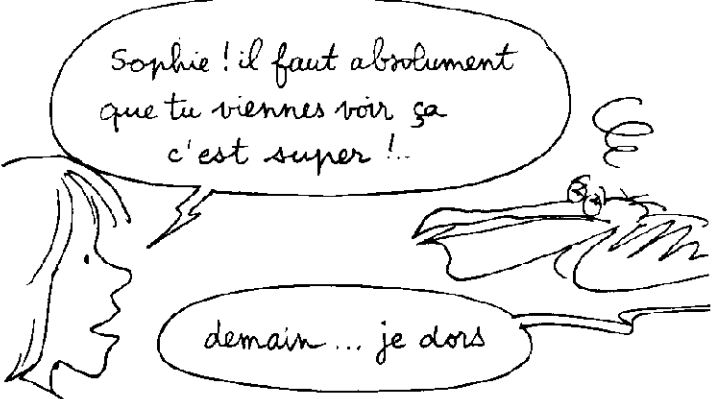 Sophie ! il faut absolument
que tu viennes voir ça
c'est super !..
demain... je dors